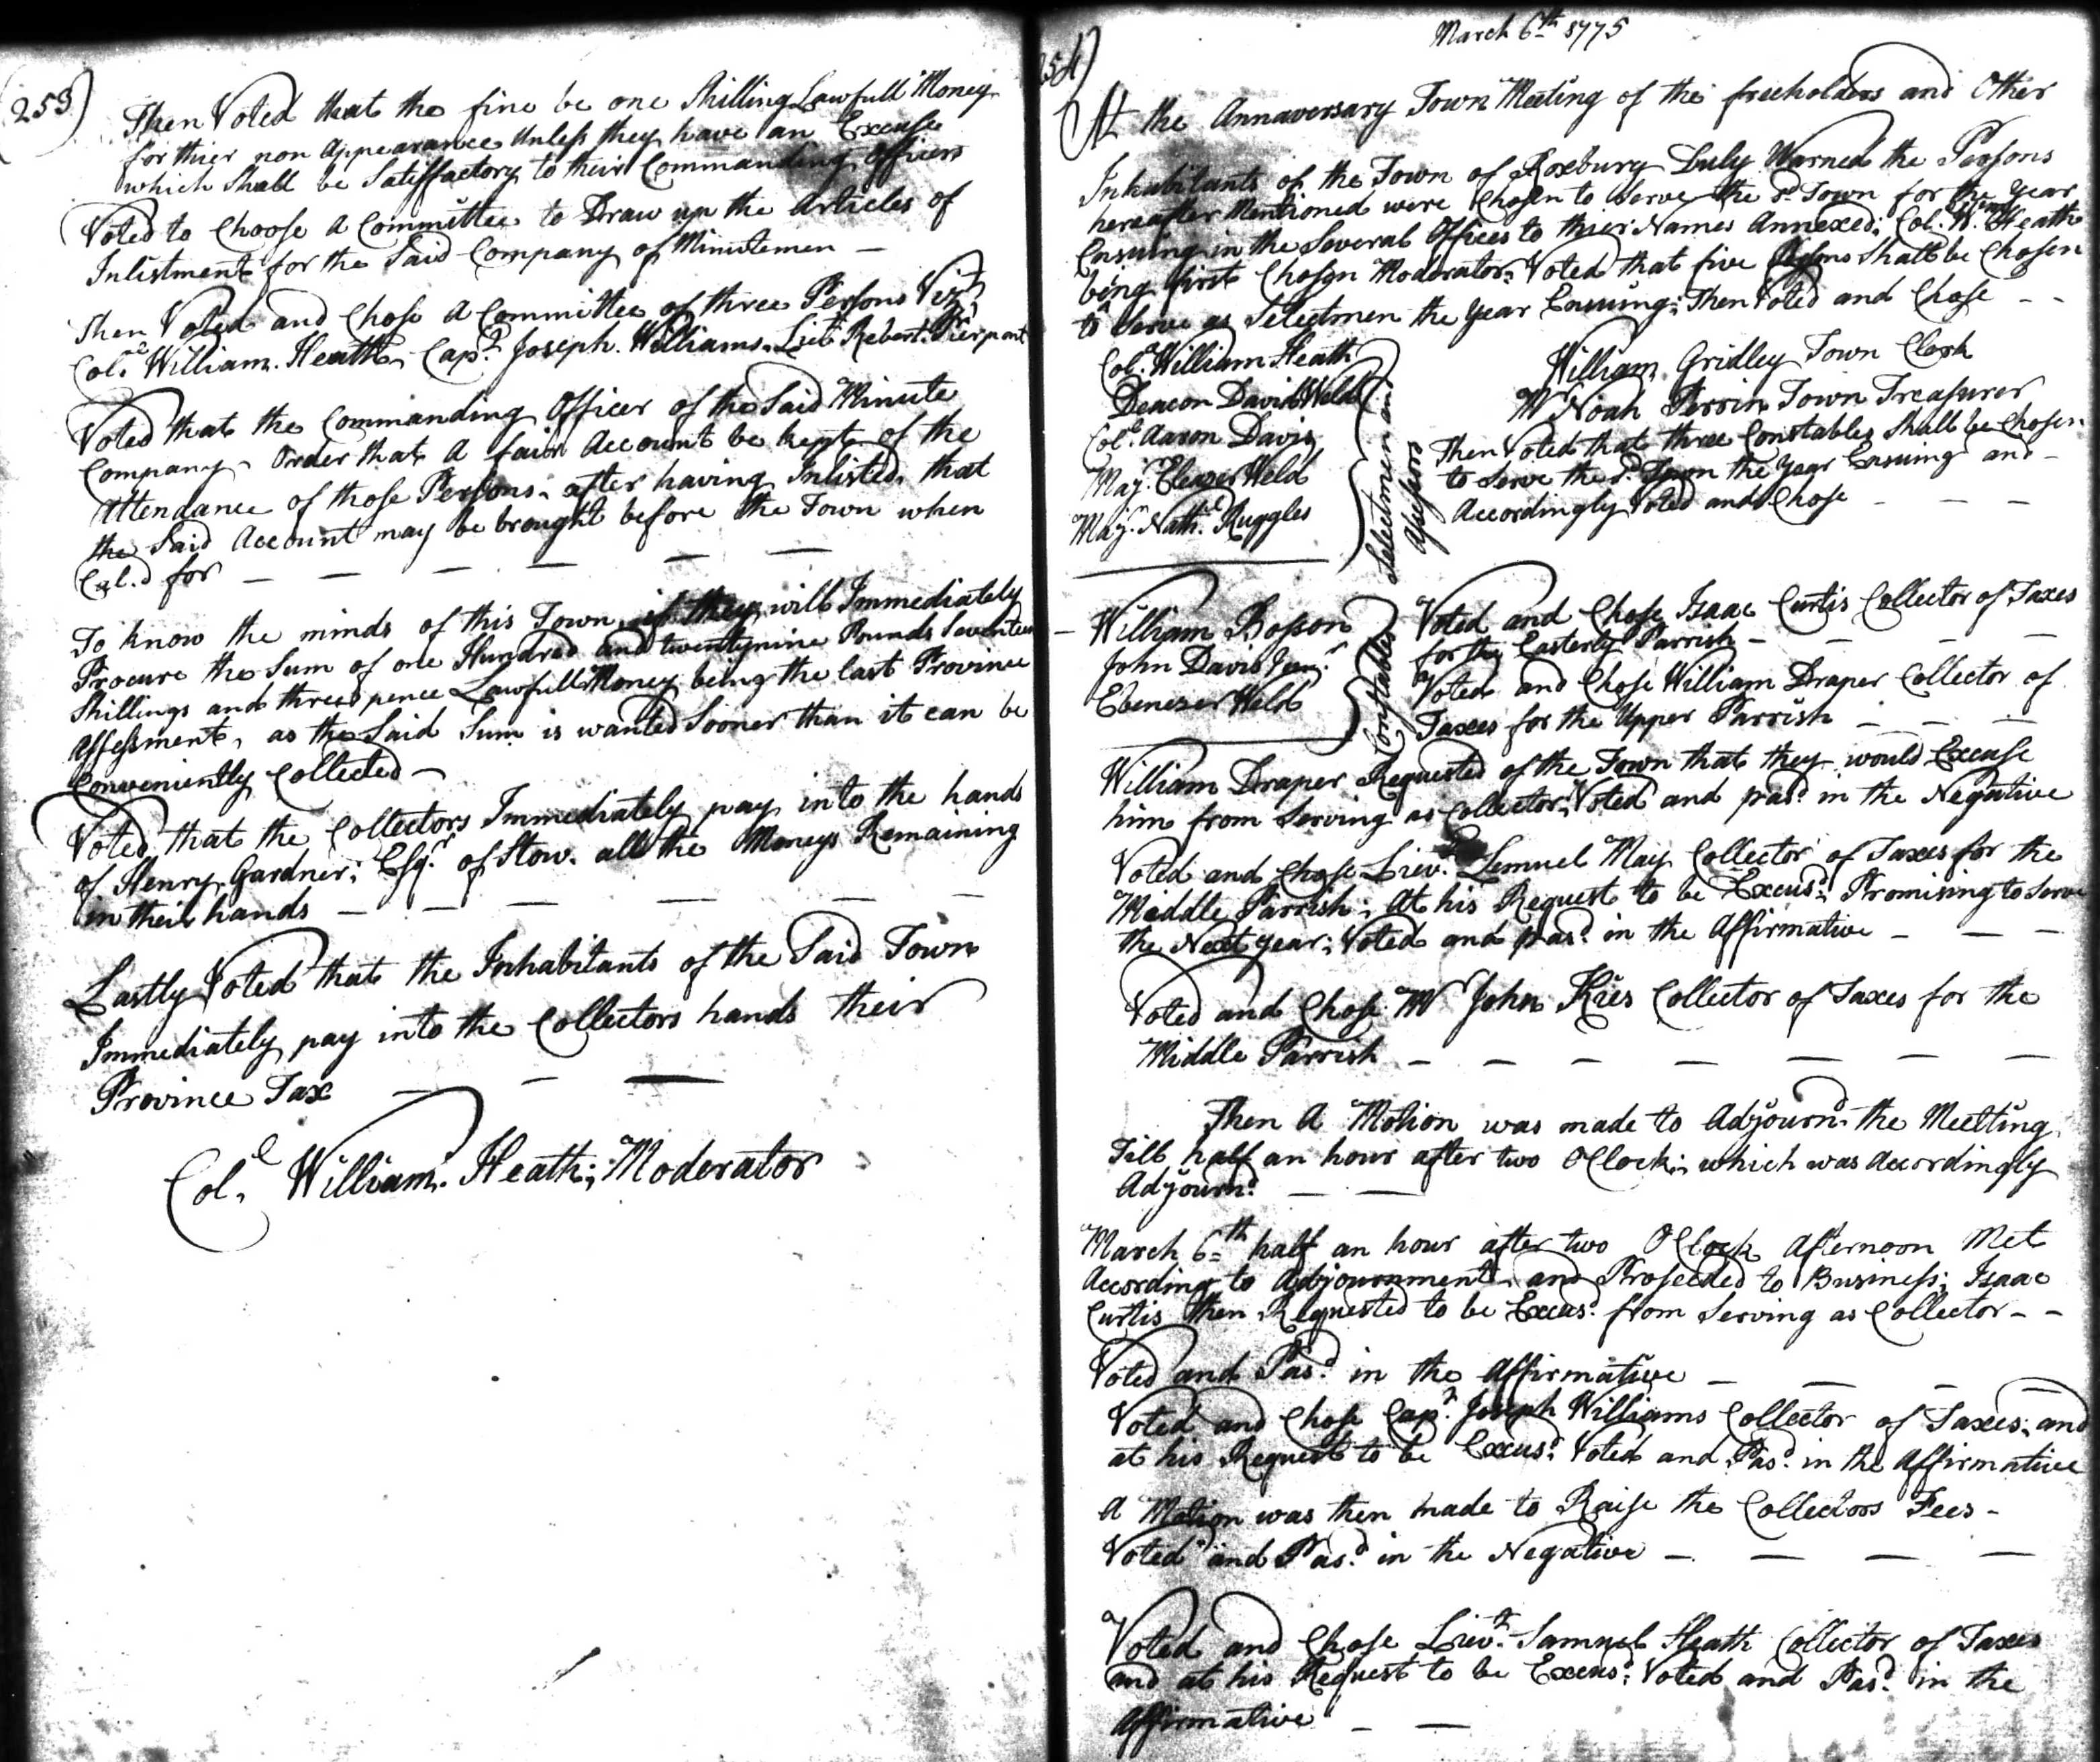 253)
Then Voted that the fine be one Shilling Lawfull Money
for thier non Appearance Unless they have an Excuse
which Shall be Satisfactory to their Commanding officers
Voted to Choose a Committee to Draw up the Articles of
Inlistment for the Said Company of Minutemen —
Then Voted and Chose a Committee of three Persons Vizt
Coll. William. Heath, Capt. Joseph. Williams. Lieut Robert. Pierpont
Voted that the Commanding Officer of the Said Minute
Company Order that a fair Account be kept of the
Attendance of those Persons after having Inlisted that
the Said Account may be brought before the Town when
Cal.d for — — — — — —
To know the minds of this Town if they will Immediately
Procure the Sum of one Hundred and twentynine Pounds Seventeen
Shillings and three pence Lawfull Money being the last Province
Assessment, as the Said Sum is wanted Sooner than it can be
Conveniently Collected —
Voted that the Collectors Immediately pay into the hands
of Henry Gardner; Esqr. of Stow. all the Moneys Remaining
in their hands — — — — — —
Lastly Voted that the Inhabitants of the Said Town
Immediately pay into the Collectors hands their
Province Tax — — —
Coll. William. Heath; Moderator
254)
March 6th 1775
At the Annaversary Town Meeting of the freeholders and Other
Inhabitants of the Town of Roxbury Duly Warned the Persons
hereafter Mentioned were Chosen to Serve the Sd. Town for the Year
Ensuing in the Several Offices to thier Names Annexed; Col. Wm. Heath
being first Chosen Moderator: Voted that five Persons Shall be Chosen
to Serve as Selectmen the Year Ensuing; Then Voted and Chose - -
Coll. William Heath
Deacon David Weld
Coll. Aaron Davis
Majr. Eleazer Weld
Majr. Nathl. Ruggles
Selectmen and
Assessors
William Gridley Town Clerk
Mr Noah Perrin Town Treasurer
Then Voted that three Constables Shall be Chosen
to Serve the Sd. Town the Year Ensuing and -
Accordingly Voted and Chose - — —
William Bosson
John Davis Junr.
Ebenezer Weld
Constables
Voted and Chose Isaac Curtis Collector of Taxes
for the Easterly Parrish — — — —
Voted and Chose William Draper Collector of
Taxes for the Upper Parrish — — —
William Draper Requested of the Town that they would Excuse
him from Serving as Collector; Voted and pasd. in the Negative
Voted and Chose Liev. Lemuel May Collector of Taxes for the
Middle Parrish; At his Request to be Excusd. Promising to Serve
the Next year; Voted and pasd. in the Affirmative — — —
Voted and Chose Mr John Kies Collector of Taxes for the
Middle Parrish — — — — — — —
Then A Motion was made to Adjournd. the Meeting
Till half an hour after two OClock; which was Accordingly
Adjournd. — —
March 6th half an hour after two OClock Afternoon Met
According to Adjournment and Proseeded to Business; Isaac
Curtis then Requested to be Excusd. from Serving as Collector - -
Voted and Pasd. in the Affirmative — — — —
Voted and Chose Capt. Joseph Williams Collector of Taxes; and
at his Request to be Excusd. Voted and Pasd. in the Affirmative
A Motion was then made to Raise the Collectors Fees -
Voted and Pasd. in the Negative — — — —
Voted and Chose Lievt. Samuel Heath Collector of Taxes
and at his Request to be Excusd. Voted and Pasd. in the
Affirmative — —